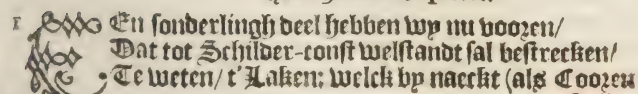 1 EEn sonderlingh deel hebben wy nu vooren/
Dat tot Schilder-const welstandt sal bestrecken/
Te weten/ t'Laken: welck by naeckt (als Cooren